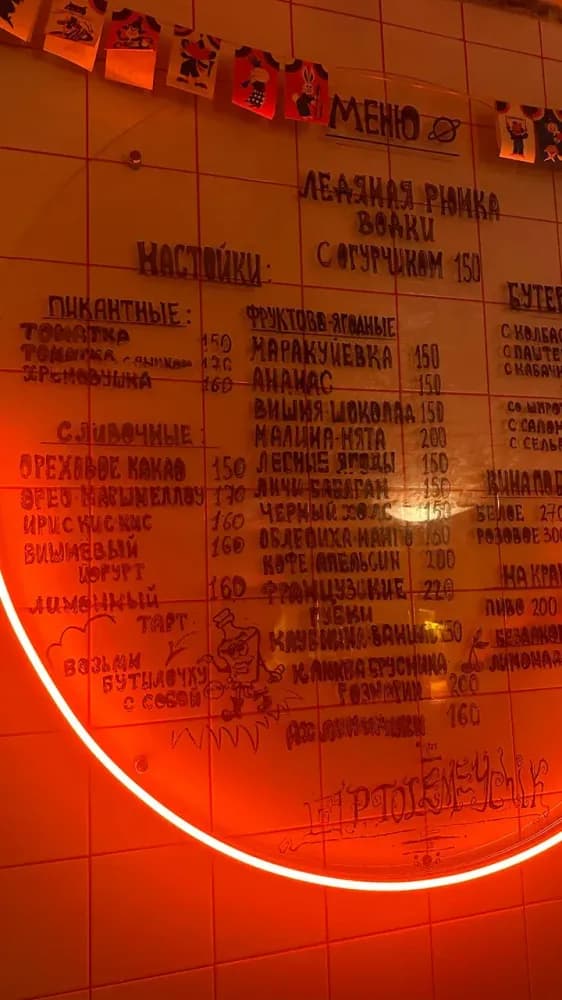 МЕНЮ
ЛЕДЯНАЯ РЮМКА
ВОДКИ
С ОГУРЧИКОМ 150
НАСТОЙКИ:
ПИКАНТНЫЕ:
ТОМАТКА 150
ТОМАТКА 170
ХРЕНОВУШКА 160
СЛИВОЧНЫЕ:
ОРЕХОВОЕ КАКАО 150
ОРЕО-МАРШМЕЛЛОУ 170
ИРИС КИС КИС 160
ВИШНЕВЫЙ 160
ЙОГУРТ
ЛИМОННЫЙ 160
ТАРТ
ВОЗЬМИ
БУТЫЛОЧКУ
С СОБОЙ
ФРУКТОВО-ЯГОДНЫЕ
МАРАКУЙЕВКА 150
АНАНАС 150
ВИШНЯ ШОКОЛАД 150
МАЛИНА-МЯТА 200
ЛЕСНЫЕ ЯГОДЫ 150
ЛИЧИ-БАБЛГАМ 150
ЧЕРНЫЙ 150
ОБЛЕПИХА-МАНГО 160
КОФЕ АПЕЛЬСИН 200
ФРАНЦУЗСКИЕ 220
ГУБКИ
КЛУБНИКА-ВАНИЛЬ
КЛЮКВА БРУСНИКА
РОЗМАРИН 200
160
БУТЕР
С КОЛБАС
С ПАШТЕ
С КАБАЧК
СО ШПРОТ
С САЛОМ
С СЕЛЬ
ВИНА ПО Б
БЕЛОЕ 270
РОЗОВОЕ 300
НА КРАН
ПИВО 200
БЕЗАЛКО
ЛИМОНАД